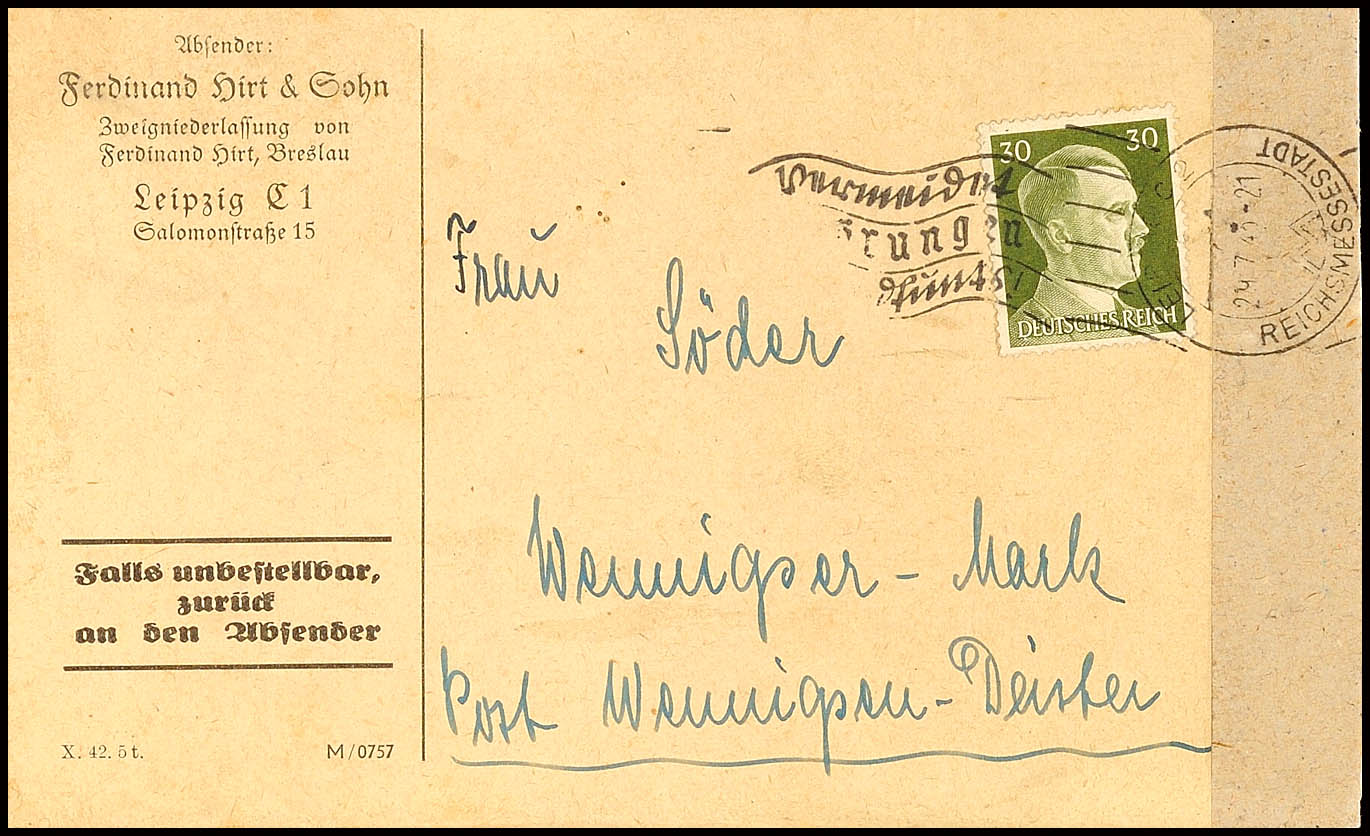 Absender:
Ferdinand Hirt & Sohn
Zweigniederlassung von
Ferdinand Hirt, Breslau
Leipzig C 1
Salomonstraße 15
Falls unbestellbar,
zurück
an den Absender
X. 42. 5 t.
M/0757
Vermeidet
30 30
DEUTSCHES REICH
REICHSMESSESTADT
Frau
Söder
Wennigser - Mark
Post Wennigsen - Deister